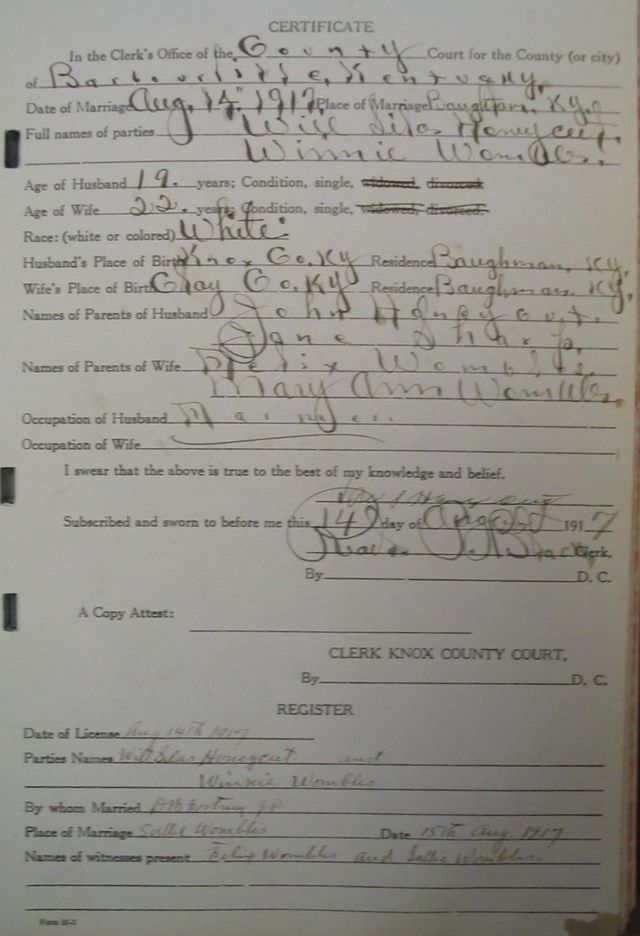 CERTIFICATE
In the Clerk's Office of the County Court for the County (or city)
of Barbourville, Kentucky,
Date of Marriage Aug, 14" 1917, Place of Marriage Baughman, Ky,
Full names of parties Will Silas Honeycutt,
Winnie Wombles,
Age of Husband 19. years; Condition, single, widowed, divorced
Age of Wife 22. years; Condition, single, widowed, divorced.
Race: (white or colored) White.
Husband's Place of Birth Knox Co, Ky Residence Baughman, Ky,
Wife's Place of Birth Clay Co, Ky Residence Baughman, Ky,
Names of Parents of Husband John Honeycutt.
Jane Sharp,
Names of Parents of Wife Felix Wombles.
Mary Ann Wombles,
Occupation of Husband Farmer.
Occupation of Wife
I swear that the above is true to the best of my knowledge and belief.
Subscribed and sworn to before me this 14 day of August 1917
Clerk.
By D. C.
A Copy Attest:
CLERK KNOX COUNTY COURT.
By D. C.
REGISTER
Date of License Aug 14th 1917
Parties Names Will Silas Honeycut and
Winnie Wombles
By whom Married J.P.
Place of Marriage Sallie Wombles Date 15th Aug. 1917
Names of witnesses present Felix Wombles and Sallie Wombles.